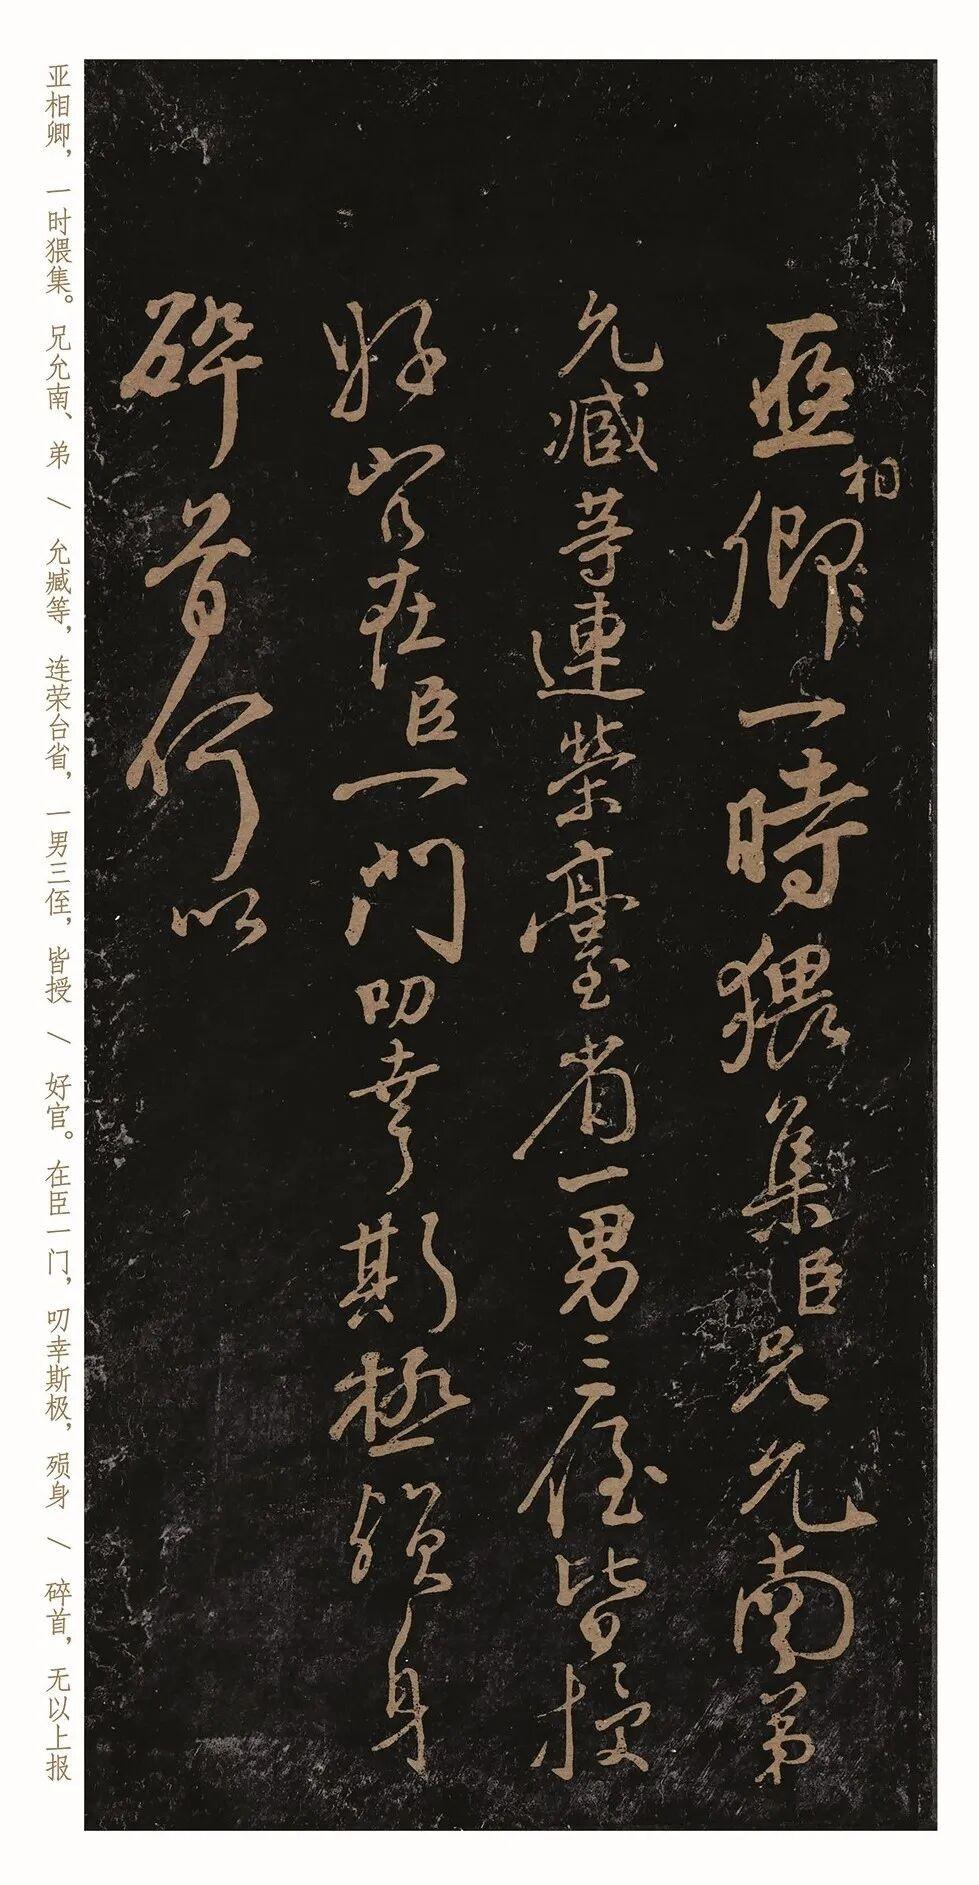 亞相卿一時猥集臣兄允南弟
允臧等連榮臺省一男三侄皆授
好官在臣一門叨幸斯極殞身
碎首何以
亚相卿，一时猥集。兄允南、弟 / 允臧等，连荣台省，一男三侄，皆授 / 好官。在臣一门，叨幸斯极，殒身 / 碎首，无以上报